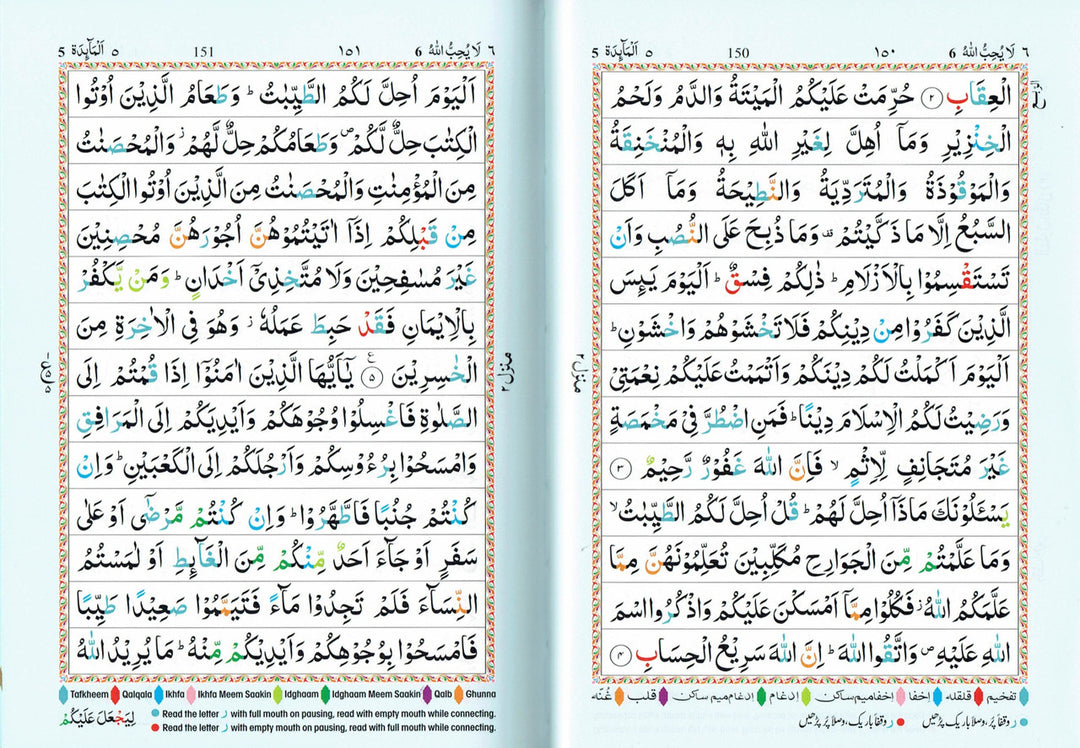 ٦ لَا يُحِبُّ اللهُ 6
١٥٠
150
٥ اَلْمَآئِدَة 5
الْعِقَابِ ۝٢ حُرِّمَتْ عَلَيْكُمُ الْمَيْتَةُ وَالدَّمُ وَلَحْمُ
الْخِنْزِيْرِ وَمَاۤ اُهِلَّ لِغَيْرِ اللهِ بِهٖ وَالْمُنْخَنِقَةُ
وَالْمَوْقُوْذَةُ وَالْمُتَرَدِّيَةُ وَالنَّطِيْحَةُ وَمَاۤ اَكَلَ
السَّبُعُ اِلَّا مَا ذَكَّيْتُمْ ۫ وَمَا ذُبِحَ عَلَى النُّصُبِ وَاَنْ
تَسْتَقْسِمُوْا بِالْاَزْلَامِ ؕ ذٰلِكُمْ فِسْقٌ ؕ اَلْيَوْمَ يَئِسَ
الَّذِيْنَ كَفَرُوْا مِنْ دِيْنِكُمْ فَلَا تَخْشَوْهُمْ وَاخْشَوْنِ ؕ
اَلْيَوْمَ اَكْمَلْتُ لَكُمْ دِيْنَكُمْ وَاَتْمَمْتُ عَلَيْكُمْ نِعْمَتِيْ
وَرَضِيْتُ لَكُمُ الْاِسْلَامَ دِيْنًا ؕ فَمَنِ اضْطُرَّ فِيْ مَخْمَصَةٍ
غَيْرَ مُتَجَانِفٍ لِّاِثْمٍ ۙ فَاِنَّ اللهَ غَفُوْرٌ رَّحِيْمٌ ۝٣
يَسْـَٔلُوْنَكَ مَاذَاۤ اُحِلَّ لَهُمْ ؕ قُلْ اُحِلَّ لَكُمُ الطَّيِّبٰتُ ۙ
وَمَا عَلَّمْتُمْ مِّنَ الْجَوَارِحِ مُكَلِّبِيْنَ تُعَلِّمُوْنَهُنَّ مِمَّا
عَلَّمَكُمُ اللهُ ؗ فَكُلُوْا مِمَّاۤ اَمْسَكْنَ عَلَيْكُمْ وَاذْكُرُوا اسْمَ
اللهِ عَلَيْهِ ۪ وَاتَّقُوا اللهَ ؕ اِنَّ اللهَ سَرِيْعُ الْحِسَابِ ۝٤
منزل ٢
تفخیم قلقلہ اِخفا اِخفامیم ساکن اِدغام اِدغام میم ساکن قلب غُنّہ
ر وقفاً پُر، وصلاً باریک پڑھیں ر وقفاً باریک، وصلاً پُر پڑھیں
٦ لَا يُحِبُّ اللهُ 6
١٥١
151
٥ اَلْمَآئِدَة 5
اَلْيَوْمَ اُحِلَّ لَكُمُ الطَّيِّبٰتُ ؕ وَطَعَامُ الَّذِيْنَ اُوْتُوا
الْكِتٰبَ حِلٌّ لَّكُمْ ۪ وَطَعَامُكُمْ حِلٌّ لَّهُمْ ؗ وَالْمُحْصَنٰتُ
مِنَ الْمُؤْمِنٰتِ وَالْمُحْصَنٰتُ مِنَ الَّذِيْنَ اُوْتُوا الْكِتٰبَ
مِنْ قَبْلِكُمْ اِذَاۤ اٰتَيْتُمُوْهُنَّ اُجُوْرَهُنَّ مُحْصِنِيْنَ
غَيْرَ مُسٰفِحِيْنَ وَلَا مُتَّخِذِيْۤ اَخْدَانٍ ؕ وَمَنْ يَّكْفُرْ
بِالْاِيْمَانِ فَقَدْ حَبِطَ عَمَلُهٗ ؗ وَهُوَ فِي الْاٰخِرَةِ مِنَ
الْخٰسِرِيْنَ ۝٥ ع يٰۤاَيُّهَا الَّذِيْنَ اٰمَنُوْۤا اِذَا قُمْتُمْ اِلَى
الصَّلٰوةِ فَاغْسِلُوْا وُجُوْهَكُمْ وَاَيْدِيَكُمْ اِلَى الْمَرَافِقِ
وَامْسَحُوْا بِرُءُوْسِكُمْ وَاَرْجُلَكُمْ اِلَى الْكَعْبَيْنِ ؕ وَاِنْ
كُنْتُمْ جُنُبًا فَاطَّهَّرُوْا ؕ وَاِنْ كُنْتُمْ مَّرْضٰۤى اَوْ عَلٰى
سَفَرٍ اَوْ جَآءَ اَحَدٌ مِّنْكُمْ مِّنَ الْغَآئِطِ اَوْ لٰمَسْتُمُ
النِّسَآءَ فَلَمْ تَجِدُوْا مَآءً فَتَيَمَّمُوْا صَعِيْدًا طَيِّبًا
فَامْسَحُوْا بِوُجُوْهِكُمْ وَاَيْدِيْكُمْ مِّنْهُ ؕ مَا يُرِيْدُ اللهُ
منزل ٢
Tafkheem Qalqala Ikhfa Ikhfa Meem Saakin Idghaam Idghaam Meem Saakin Qalb Ghunna
Read the letter ر with full mouth on pausing, read with empty mouth while connecting.
Read the letter ر with empty mouth on pausing, read with full mouth while connecting.
لِيَجْعَلَ عَلَيْكُمْ